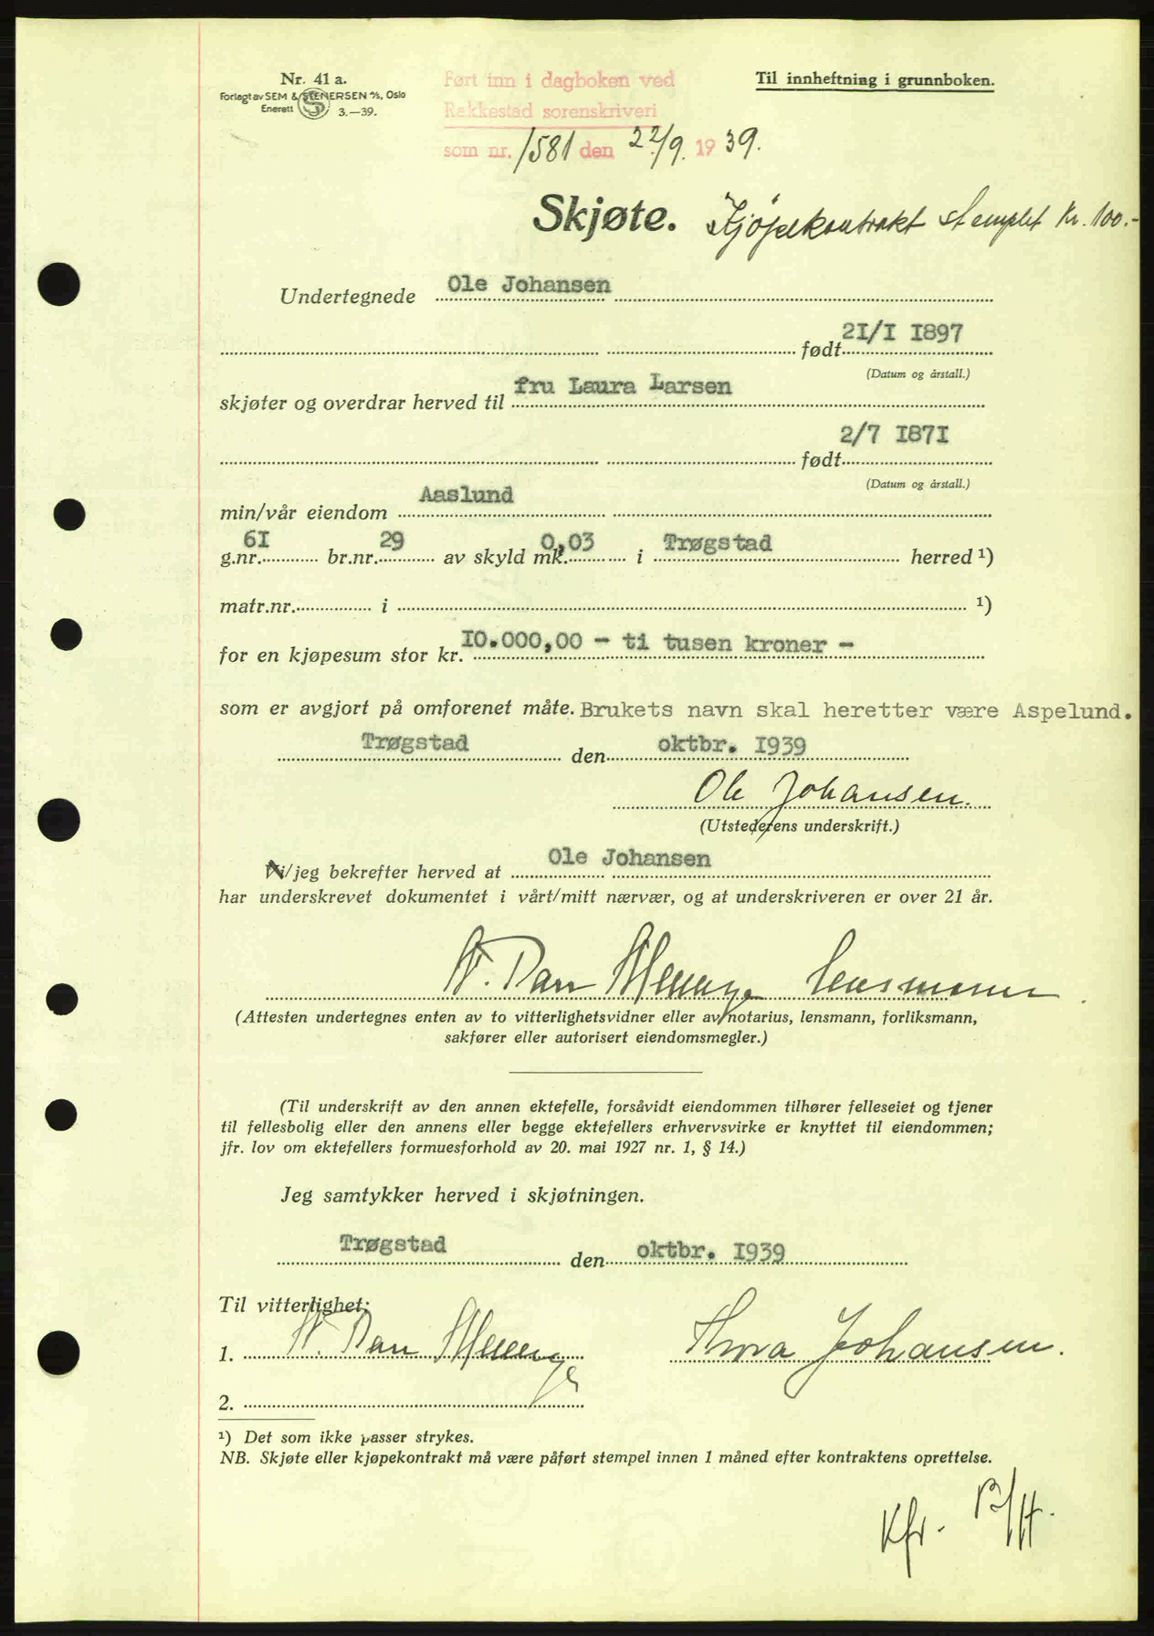 Nr. 41 a.
Forlagt av SEM & STENERSEN A/S, Oslo
Enerett S 3.—39.
Ført inn i dagboken ved
Rakkestad sorenskriveri
som nr. 1581 den 22/9. 1939.
Til innheftning i grunnboken.
Skjøte. Kjøpekontrakt stemplet Kr. 100.-
Undertegnede Ole Johansen
født 21/1 1897
(Datum og årstall.)
skjøter og overdrar herved til fru Laura Larsen
født 2/7 1871
(Datum og årstall.)
min/vår eiendom Aaslund
g.nr. 61 br.nr. 29 av skyld mk. 0,03 i Trøgstad herred ¹)
matr.nr. i ¹)
for en kjøpesum stor kr. 10.000,00 - ti tusen kroner -
som er avgjort på omforenet måte. Brukets navn skal heretter være Aspelund.
Trøgstad den oktbr. 1939
Ole Johansen.
(Utstederens underskrift.)
Vi/jeg bekrefter herved at Ole Johansen
har underskrevet dokumentet i vårt/mitt nærvær, og at underskriveren er over 21 år.
lensmann
(Attesten undertegnes enten av to vitterlighetsvidner eller av notarius, lensmann, forliksmann,
sakfører eller autorisert eiendomsmegler.)
(Til underskrift av den annen ektefelle, forsåvidt eiendommen tilhører felleseiet og tjener
til fellesbolig eller den annens eller begge ektefellers erhvervsvirke er knyttet til eiendommen;
jfr. lov om ektefellers formuesforhold av 20. mai 1927 nr. 1, § 14.)
Jeg samtykker herved i skjøtningen.
Trøgstad den oktbr. 1939
Til vitterlighet:
1. Thora Johansen.
2.
¹) Det som ikke passer strykes.
NB. Skjøte eller kjøpekontrakt må være påført stempel innen 1 måned efter kontraktens oprettelse.
Kfr.